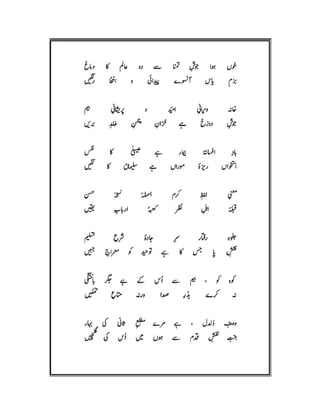 خوں ہوا جوشِ تمنا سے دو عالم کا دماغ
بزم یاس آنسوے پیدائی و اخفا رنگیں
خانہ ویرانیِ امید و پریشانیِ بیم
جوشِ دوزخ ہے خزانِ چمنِ خلدِ بریں
باد افسانۂ بیمار ہے عیسیٰ کا نفس
استخواں ریزۂ موراں ہے سلیمانی کا نگیں
معنیِ لفظِ کرم بسملۂ نسخۂ حسن
قبلۂ اہلِ نظر کعبۂ اربابِ یقیں
جلوہ رفتارِ سرِ جادۂ شرعِ تسلیم
نقشِ پا جس کا ہے توحید کو معراجِ جبیں
کوہ کو ، بیم سے اُس کے ہے جگر باختگی
نہ کرے نذرِ صدا ورنہ متاعِ تمکیں
وصفِ دُلدل ، ہے مرے مطلعِ ثانی کی بہار
جنتِ نقشِ قدم سے ہوں میں اُس کی گلچیں